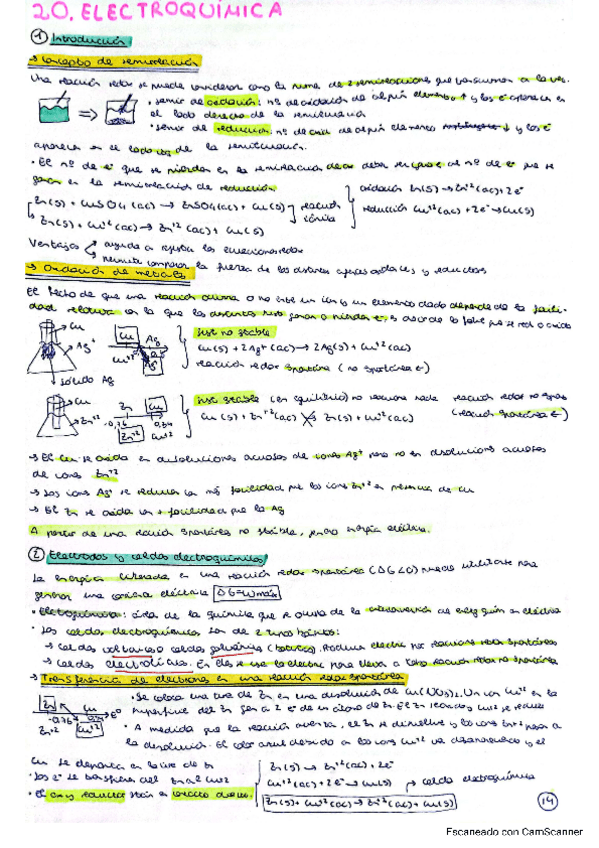 20. ELECTROQUÍMICA
① Introducción
→ Concepto de semirreacción
Una reacción redox se puede considerar como la suma de 2 semirreacciones que transcurren a la vez.
• semir de oxidación: nº de oxidación de algún elemento ↑ y los e⁻ aparecen en
el lado derecho de la semirreacción
• semir de reducción: nº de oxid de algún elemento ↓ y los e⁻
aparecen en el lado izq de la semirreacción.
• El nº de e⁻ que se pierden en la semirreacción de ox debe ser igual al nº de e⁻ que se
ganan en la semirreacción de reducción
Zn(s) + CuSO4 (ac) → ZnSO4(ac) + Cu(s)
Zn(s) + Cu⁺²(ac) → Zn⁺²(ac) + Cu(s)
reacción iónica
oxidación Zn(s) → Zn⁺²(ac) + 2e⁻
reducción Cu⁺²(ac) + 2e⁻ → Cu(s)
Ventajas
ayuda a ajustar las ecuaciones redox
permite comparar la fuerza de los distintos agentes oxidantes y reductores
→ Oxidación de metales
El hecho de que una reacción ocurra o no entre un ion y un elemento dado depende de la facili-
dad relativa con la que los distintos ganan o pierden e⁻, es decir de lo fácil que se red o oxida
Cu
Ag⁺
sólido Ag
Cu Ag
Cu⁺² Ag⁺
no stable
Cu(s) + 2Ag⁺(ac) → 2Ag(s) + Cu⁺²(ac)
reacción redox spontánea (no spontánea ←)
Cu
Zn⁺²
Zn Cu
-0,76 0,34
Zn⁺² Cu⁺²
stable (en equilibrio) no ocurre nada reacción redox no spont
(reacción spontánea ←)
Cu(s) + Zn⁺²(ac) → Zn(s) + Cu⁺²(ac)
→ El Cu se oxida en disoluciones acuosas de iones Ag⁺ pero no en disoluciones acuosas
de iones Zn⁺²
→ Los iones Ag⁺ se reducen con más facilidad que los iones Zn⁺² en presencia de Cu
→ El Zn se oxida con + facilidad que la Ag
A partir de una reacción spontánea no stable, energía eléctrica.
② Electrodos y celdas electroquímicas
La energía liberada en una reacción redox spontánea (ΔG<0) puede utilizarse para
generar una corriente eléctrica ΔG=Wmáx
• Electroquímica: área de la química que se ocupa de la interconversión de energ quim en eléctrica
• Las celdas electroquímicas son de 2 tipos básicos:
→ celdas voltaicas o celdas galvánicas (baterías). Produce electric por reacciones redox spontáneas
→ celdas electrolíticas. En ellas se usa la electric para llevar a cabo reacción redox no spontánea
→ Transferencia de electrones en una reacción redox spontánea
Zn Cu
-0.76 E°
Zn⁺² Cu⁺²
• Se coloca una tira de Zn en una disolución de Cu(NO3)2. Un ion Cu⁺² en la
superficie del Zn gana 2 e⁻ de un átomo de Zn. El Zn se oxida y el Cu⁺² se reduce
• A medida que la reacción avanza, el Zn se disuelve y los iones Zn⁺² pasan a
la disolución. El color azul debido a los iones Cu⁺² va desapareciendo y el
Cu se deposita en la tira de Zn
• Los e⁻ se transfieren del Zn al Cu⁺²
• El ox y reductor están en contacto directo.
Zn(s) → Zn⁺²(ac) + 2e⁻
Cu⁺²(ac) + 2e⁻ → Cu(s)
celda electroquímica
Zn(s) + Cu⁺²(ac) → Zn⁺²(ac) + Cu(s)
14
Escaneado con CamScanner